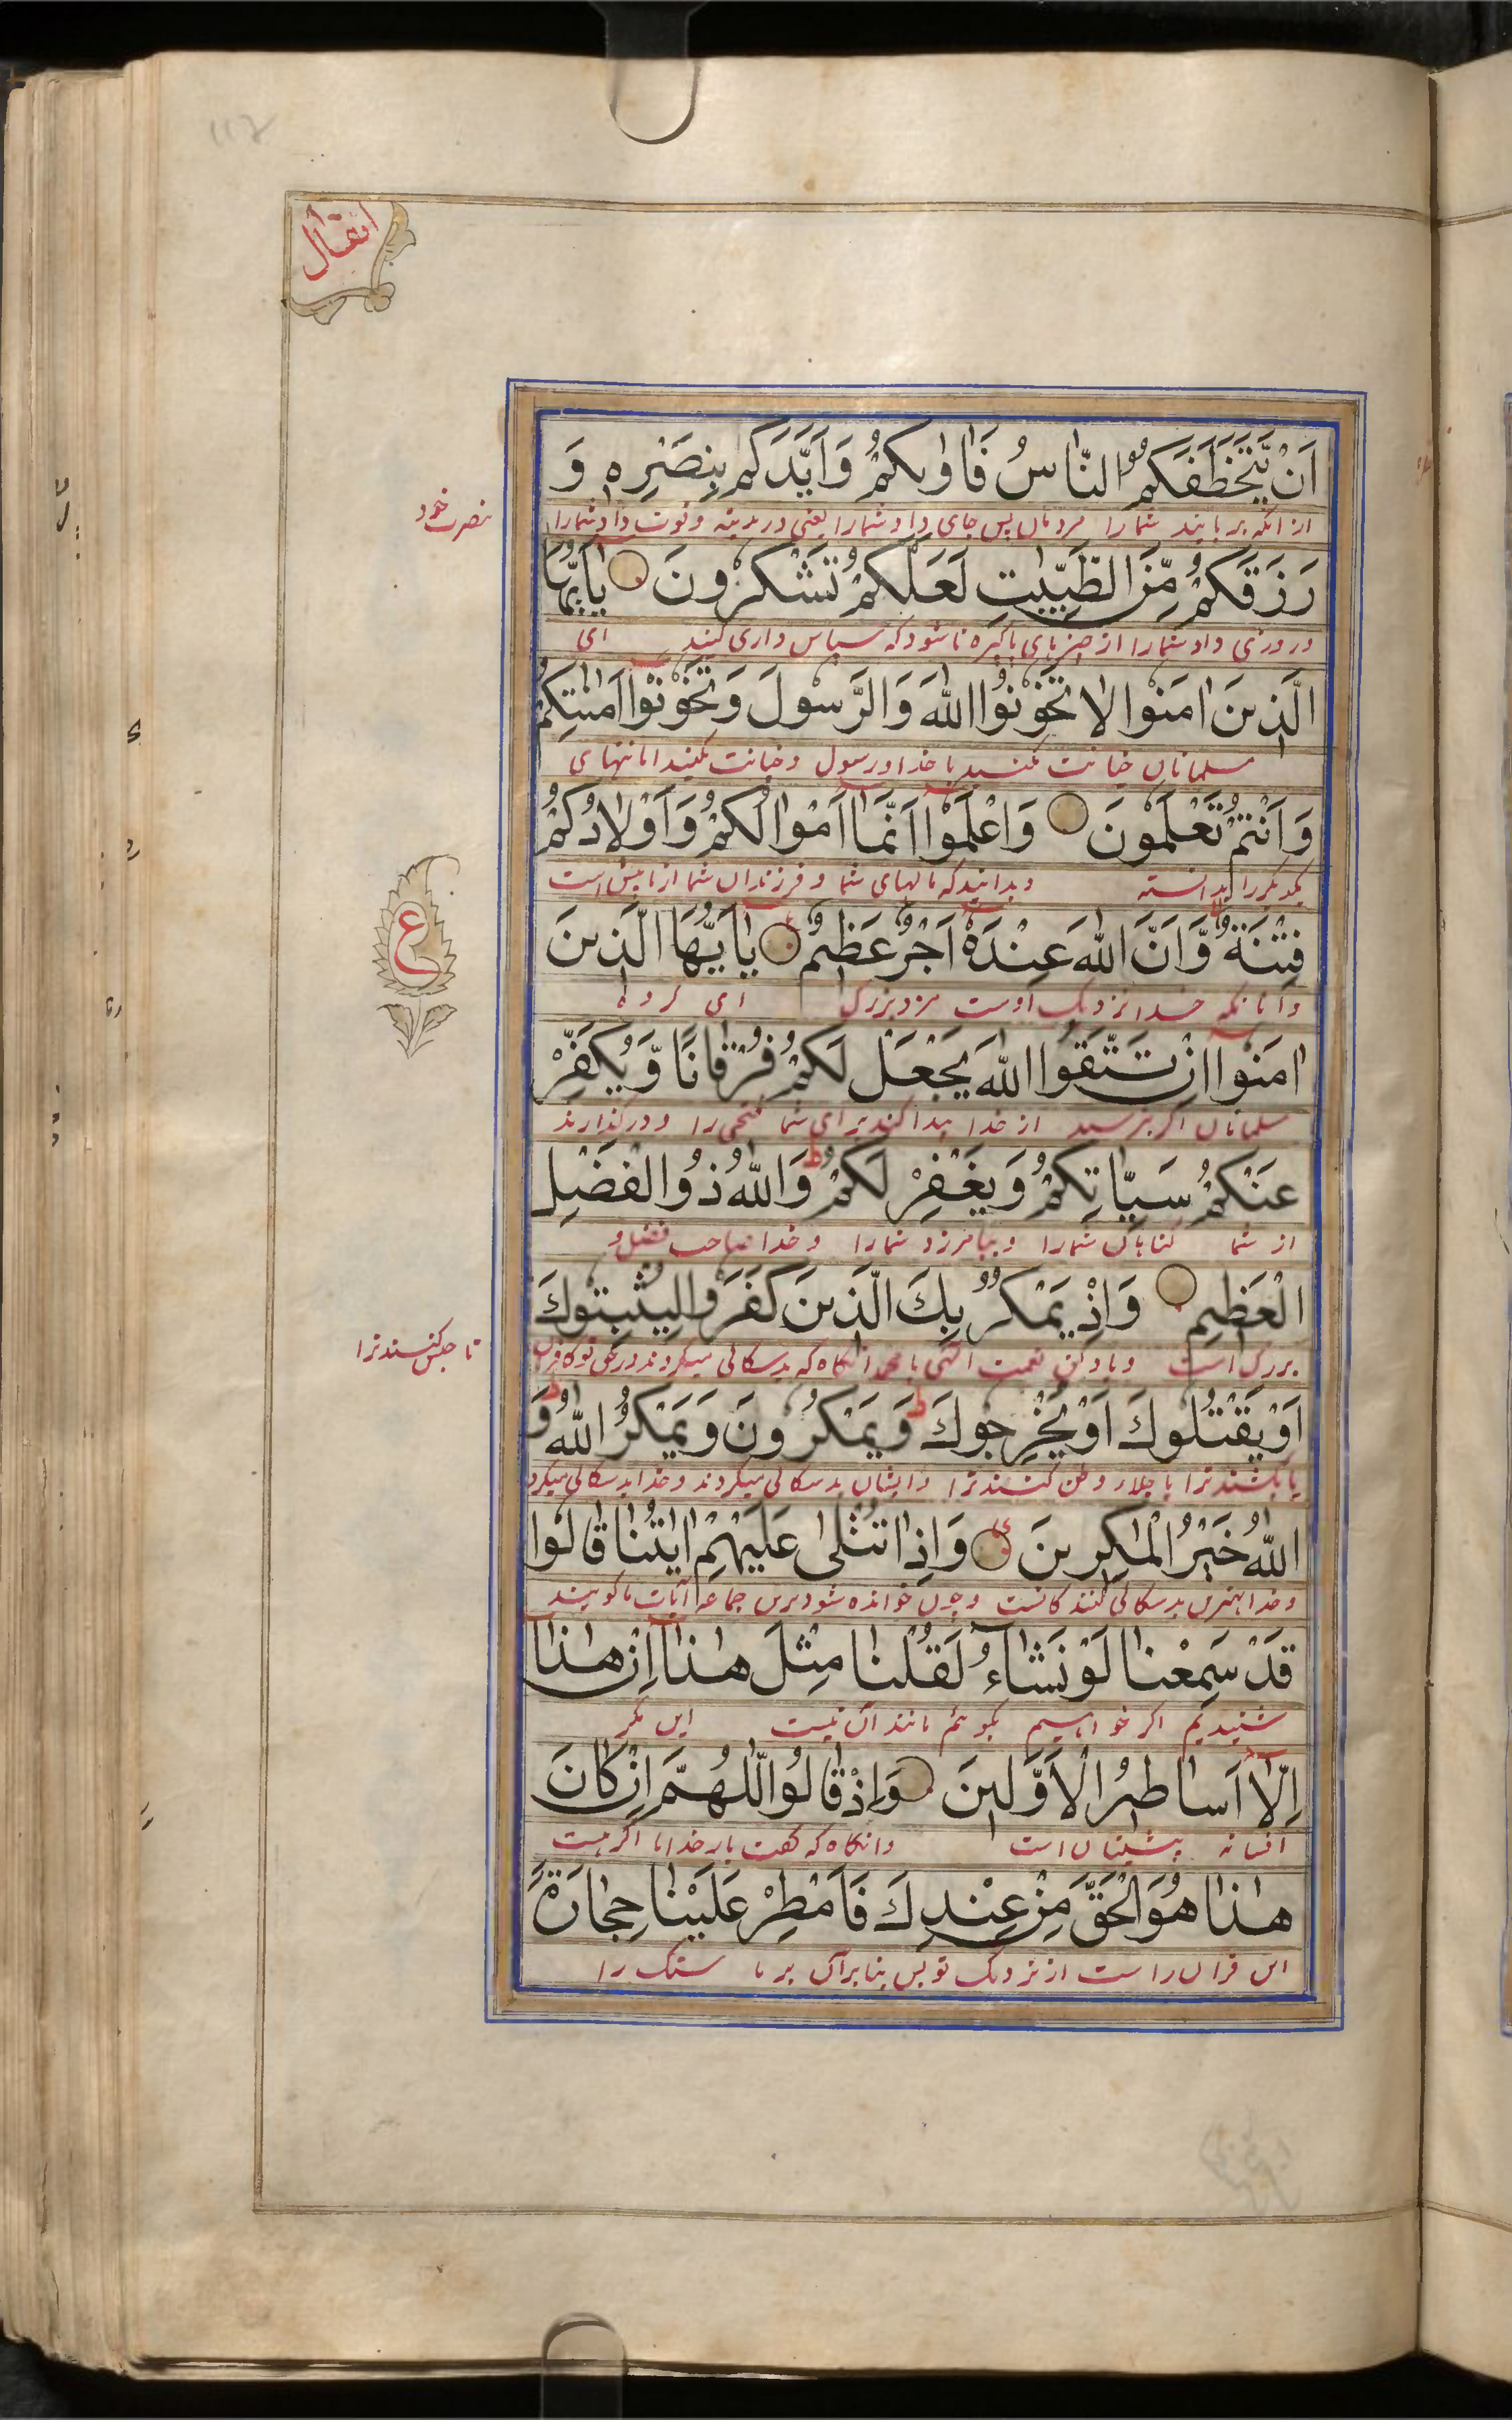 انفال
اَنْ يَّتَخَطَّفَكُمُ النَّاسُ فَاٰوٰىكُمْ وَاَيَّدَكُمْ بِنَصْرِهٖ وَ
از انکه بربایند شما را مردمان پس جای داد شما را یعنی در مدینه و قوت داد شما را
بنصرت خود
رَزَقَكُمْ مِّنَ الطَّيِّبٰتِ لَعَلَّكُمْ تَشْكُرُونَ يٰاَيُّهَا
و روزی داد شما را از چیزهای پاکیزه تا شود که سپاس داری کنید ای
الَّذِينَ اٰمَنُوا لَا تَخُوْنُوا اللّٰهَ وَالرَّسُولَ وَتَخُوْنُوْا اَمٰنٰتِكُمْ
مسلمانان خیانت مکنید با خدا و رسول و خیانت مکنید امانتهای
وَاَنْتُمْ تَعْلَمُونَ وَاعْلَمُوْا اَنَّمَا اَمْوَالُكُمْ وَاَوْلَادُكُمْ
یکدیکر را دانسته و بدانید که مالهای شما و فرزندان شما ازمایش است
ع
فِتْنَةٌ وَّاَنَّ اللّٰهَ عِنْدَهٗ اَجْرٌ عَظِيْمٌ يٰاَيُّهَا الَّذِينَ
و انکه خدا نزدیک اوست مزد بزرک ای کروه
اٰمَنُوا اِنْ تَتَّقُوا اللّٰهَ يَجْعَلْ لَكُمْ فُرْقَانًا وَّيُكَفِّرْ
مسلمانان اکر بترسید از خدا پیدا کند برای شما فتحی را و درکذارند
عَنْكُمْ سَيِّاٰتِكُمْ وَيَغْفِرْ لَكُمْ وَاللّٰهُ ذُو الْفَضْلِ
از شما کناهان شما را و بیامرزد شما را و خدا صاحب فضل
الْعَظِيْمِ وَاِذْ يَمْكُرُ بِكَ الَّذِينَ كَفَرُوا لِيُثْبِتُوكَ
بزرک است و یاد کن نعمت الهی یا محمد انکاه که بدسکالی میکردند در حق تو کافران
تا حبس کنند ترا
اَوْ يَقْتُلُوكَ اَوْ يُخْرِجُوكَ وَيَمْكُرُونَ وَيَمْكُرُ اللّٰهُ وَ
یا بکشند ترا یا جلاء وطن کنند ترا و ایشان بدسکالی میکردند و خدا بدسکالی میکرد
اللّٰهُ خَيْرُ الْمٰكِرِينَ وَاِذَا تُتْلٰى عَلَيْهِمْ اٰيٰتُنَا قَالُوا
و خدا بهترین بدسکالی کنندکانست و چون خوانده شود برین جماعه آیات ما کویند
قَدْ سَمِعْنَا لَوْ نَشَاءُ لَقُلْنَا مِثْلَ هٰذَا اِنْ هٰذَا
شنیدیم اکر خواهیم بکوئیم مانند آن نیست این مکر
اِلَّا اَسَاطِيْرُ الْاَوَّلِيْنَ وَاِذْ قَالُوا اللّٰهُمَّ اِنْ كَانَ
افسانه پیشینان است و انکاه که کفت بار خدایا اکر هست
هٰذَا هُوَ الْحَقَّ مِنْ عِنْدِكَ فَاَمْطِرْ عَلَيْنَا حِجَارَةً
این قران راست از نزدیک تو پس بباران بر ما سنک را